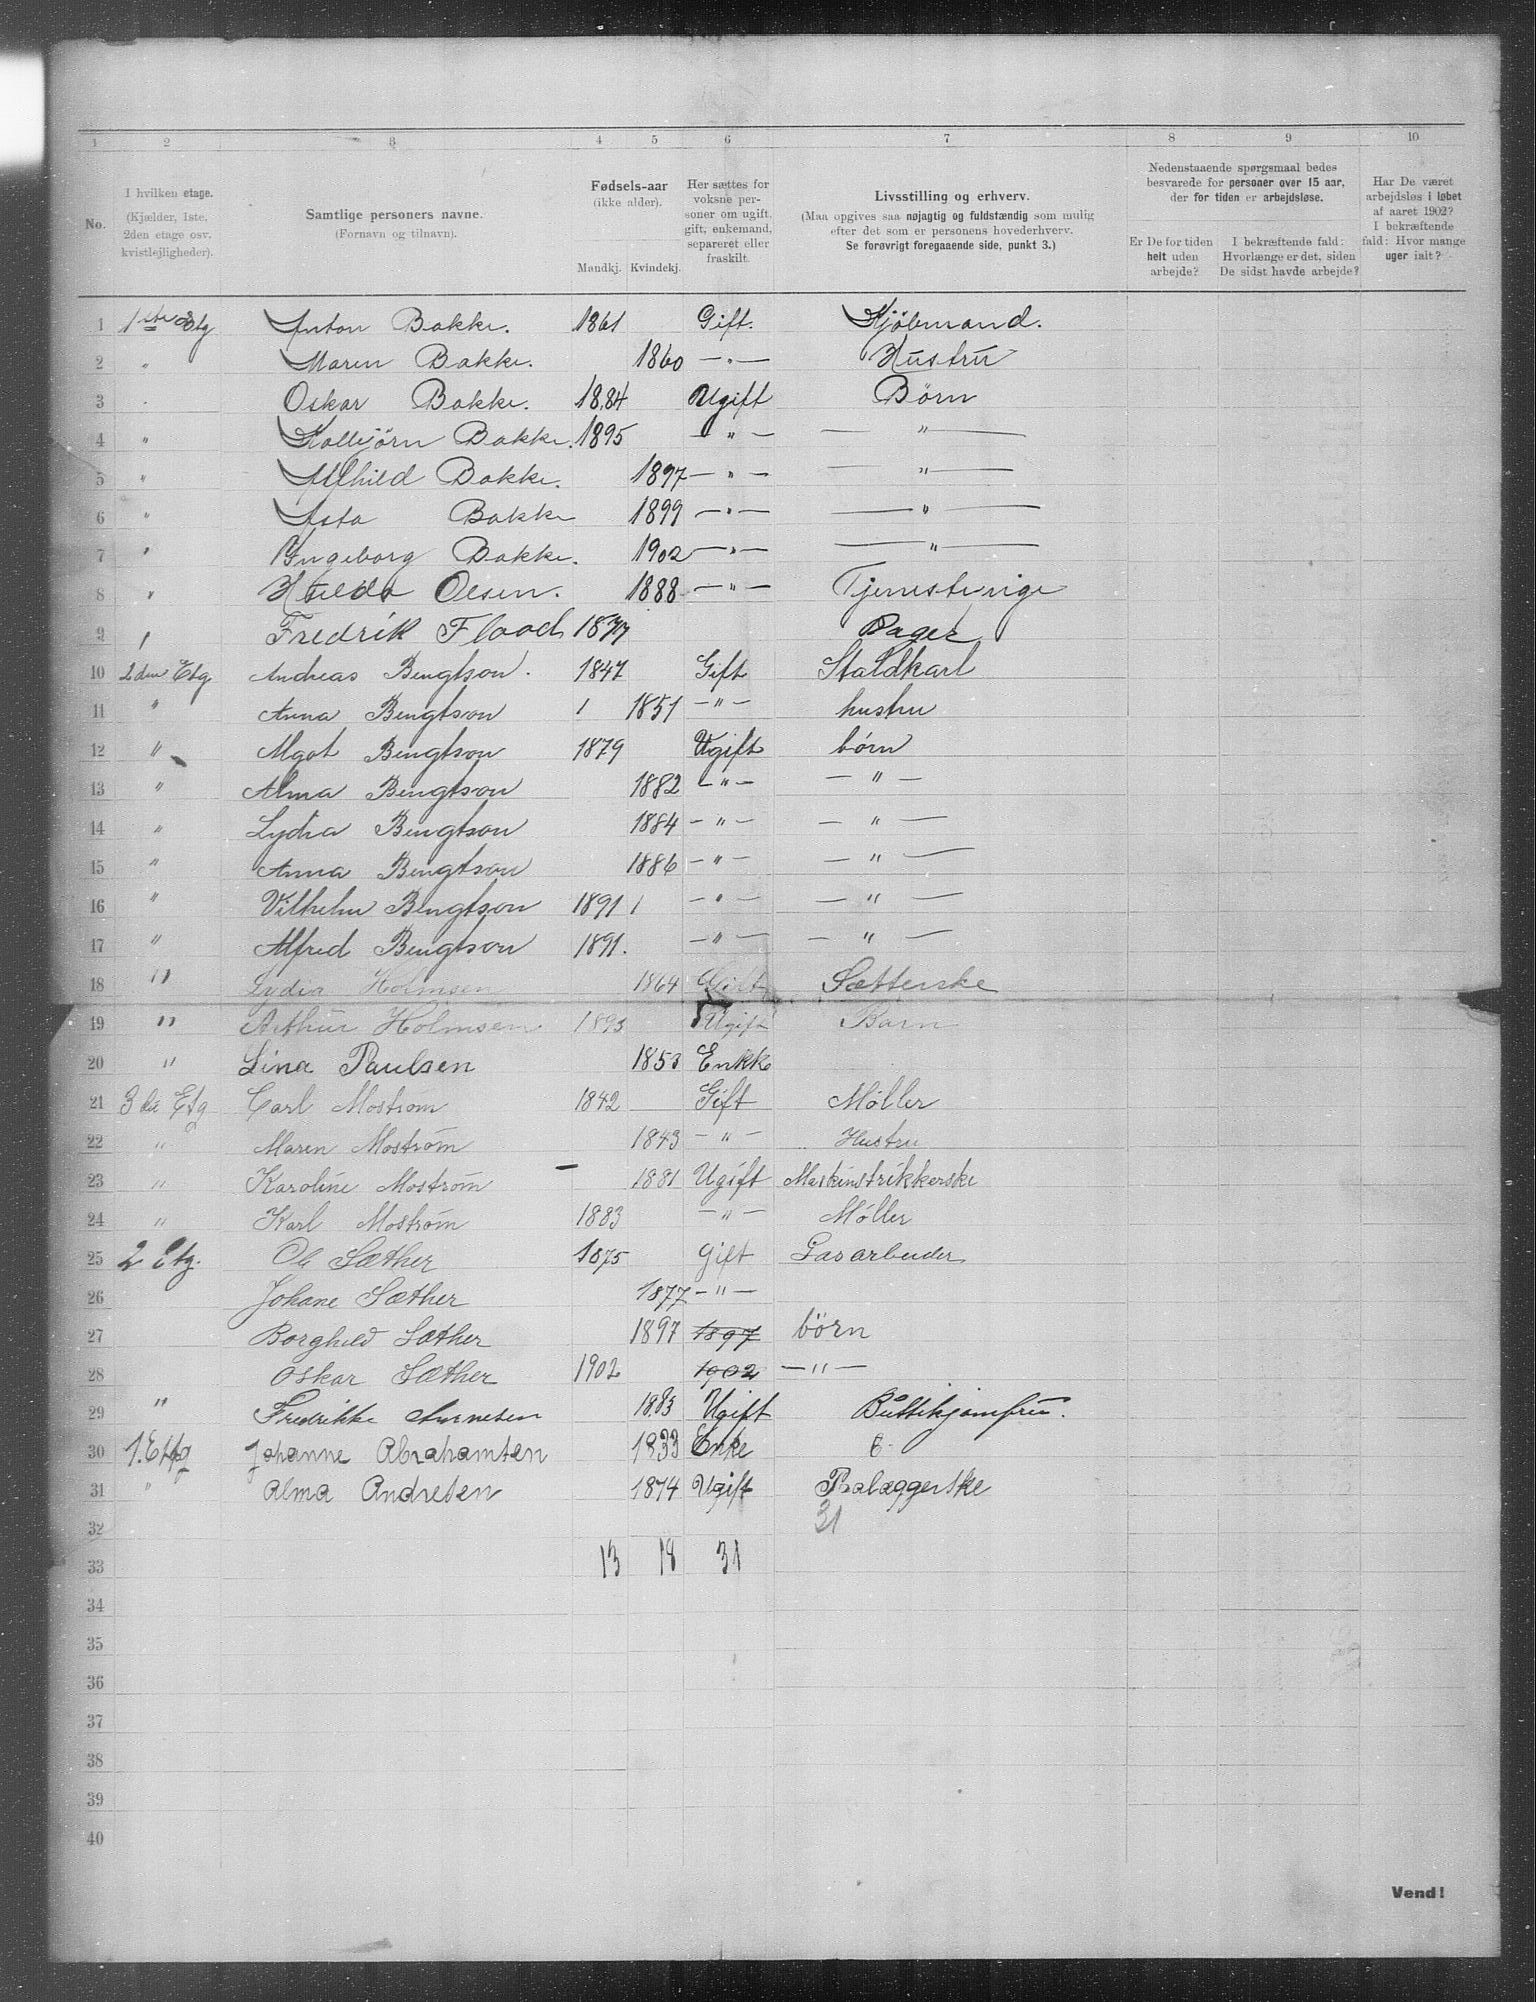 1 2 3 4 5 6 7 8 9 10
No.
I hvilken etage. (Kjælder, 1ste, 2den etage osv. kvistlejligheder).
Samtlige personers navne. (Fornavn og tilnavn).
Fødsels-aar (ikke alder). Mandkj. Kvindekj.
Her sættes for voksne personer om ugift, gift, enkemand, separeret eller fraskilt.
Livsstilling og erhverv. (Maa opgives saa nøjagtig og fuldstændig som mulig efter det som er personens hovederhverv. Se forøvrigt foregaaende side, punkt 3.)
Nedenstaaende spørgsmaal bedes besvarede for personer over 15 aar, der for tiden er arbejdsløse.
Er De for tiden helt uden arbejde?
I bekræftende fald: Hvorlænge er det, siden De sidst havde arbejde?
Har De været arbejdsløs i løbet af aaret 1902? I bekræftende fald: Hvor mange uger ialt?
1 1ste Etg Anton Bakke. 1861 Gift. Kjøbmand.
2 " Maren Bakke. 1860 — " — Hustru
3 " Oskar Bakke. 1884 Ugift Børn
4 " Kolbjørn Bakke. 1895 — " — — " —
5 " Alfhild Bakke. 1897 — " — — " —
6 " Asta Bakke 1899 — " — — " —
7 " Ingeborg Bakke. 1902 — " — — " —
8 " Hulda Olsen. 1888 — " — Tjenestepige
9 " Fredrik Flood 1877 Bager
10 2den Etg Andreas Bengtson. 1847 Gift Staldkarl
11 " Anna Bengtson 1851 — " — hustru
12 " Algot Bengtson 1879 Ugift børn
13 " Alma Bengtson 1882 — " — — " —
14 " Lydia Bengtson 1884 — " — — " —
15 " Anna Bengtson 1886 — " — — " —
16 " Vilhelm Bengtson 1891 — " — — " —
17 " Alfred Bengtson 1891. — " — — " —
18 " Lydia Holmsen 1864 Gift Sætterske
19 " Arthur Holmsen 1893 Ugift Barn
20 " Lina Paulsen 1853 Enkke
21 3die Etg Carl Mostrøm 1842 Gift Møller
22 " Maren Mostrøm 1843 — " — Hustru
23 " Karoline Mostrøm — 1881 Ugift Maskinstrikkerske
24 " Karl Mostrøm 1883 — " — Møller
25 2 Etg. Ole Sæther 1875 Gift Gasarbeider
26 Johane Sæther 1877 — " —
27 Borghild Sæther 1897 1897 børn
28 Oskar Sæther 1902 1902 — " —
29 " Fredrikke Arnesen 1883 Ugift Buttikjomfru.
30 1. Etg Johanne Abrahamsen 1833 Enke
31 " Alma Andresen 1874 Ugift Palæggerske
32 31
33 13 18 31
34
35
36
37
38
39
40
Vend!